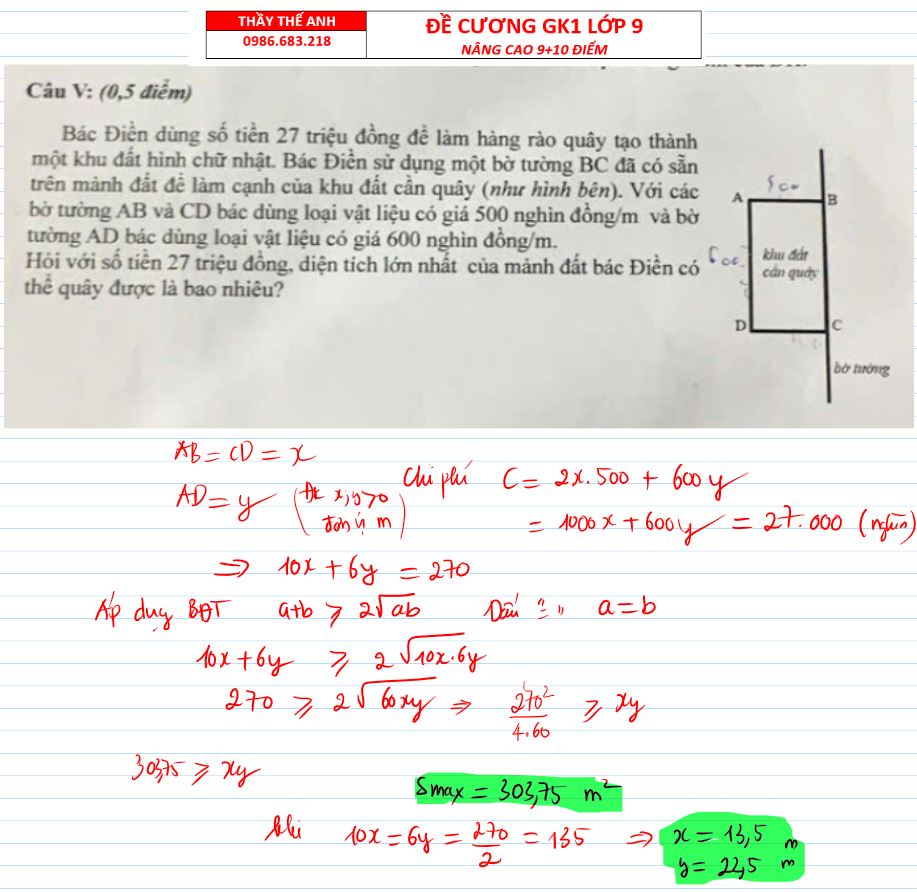 THẦY THẾ ANH
0986.683.218
ĐỀ CƯƠNG GK1 LỚP 9
NÂNG CAO 9+10 ĐIỂM
Câu V: (0,5 điểm)
Bác Điền dùng số tiền 27 triệu đồng để làm hàng rào quây tạo thành
một khu đất hình chữ nhật. Bác Điền sử dụng một bờ tường BC đã có sẵn
trên mảnh đất để làm cạnh của khu đất cần quây (như hình bên). Với các
bờ tường AB và CD bác dùng loại vật liệu có giá 500 nghìn đồng/m và bờ
tường AD bác dùng loại vật liệu có giá 600 nghìn đồng/m.
Hỏi với số tiền 27 triệu đồng, diện tích lớn nhất của mảnh đất bác Điền có
thể quây được là bao nhiêu?
A
B
khu đất
cần quây
D
C
bờ tường
AB = CD = x
AD = y (Đk x,y>0 đơn vị m)
Chi phí C = 2x.500 + 600y
= 1000x + 600y = 27.000 (nghìn)
⇒ 10x + 6y = 270
Áp dụng BĐT a+b ≥ 2√ab Dấu "=" a=b
10x+6y ≥ 2√10x.6y
270 ≥ 2√60xy ⇒ 270²/4.60 ≥ xy
303,75 ≥ xy
Smax = 303,75 m²
khi 10x = 6y = 270/2 = 135 ⇒ x = 13,5 m
y = 22,5 m